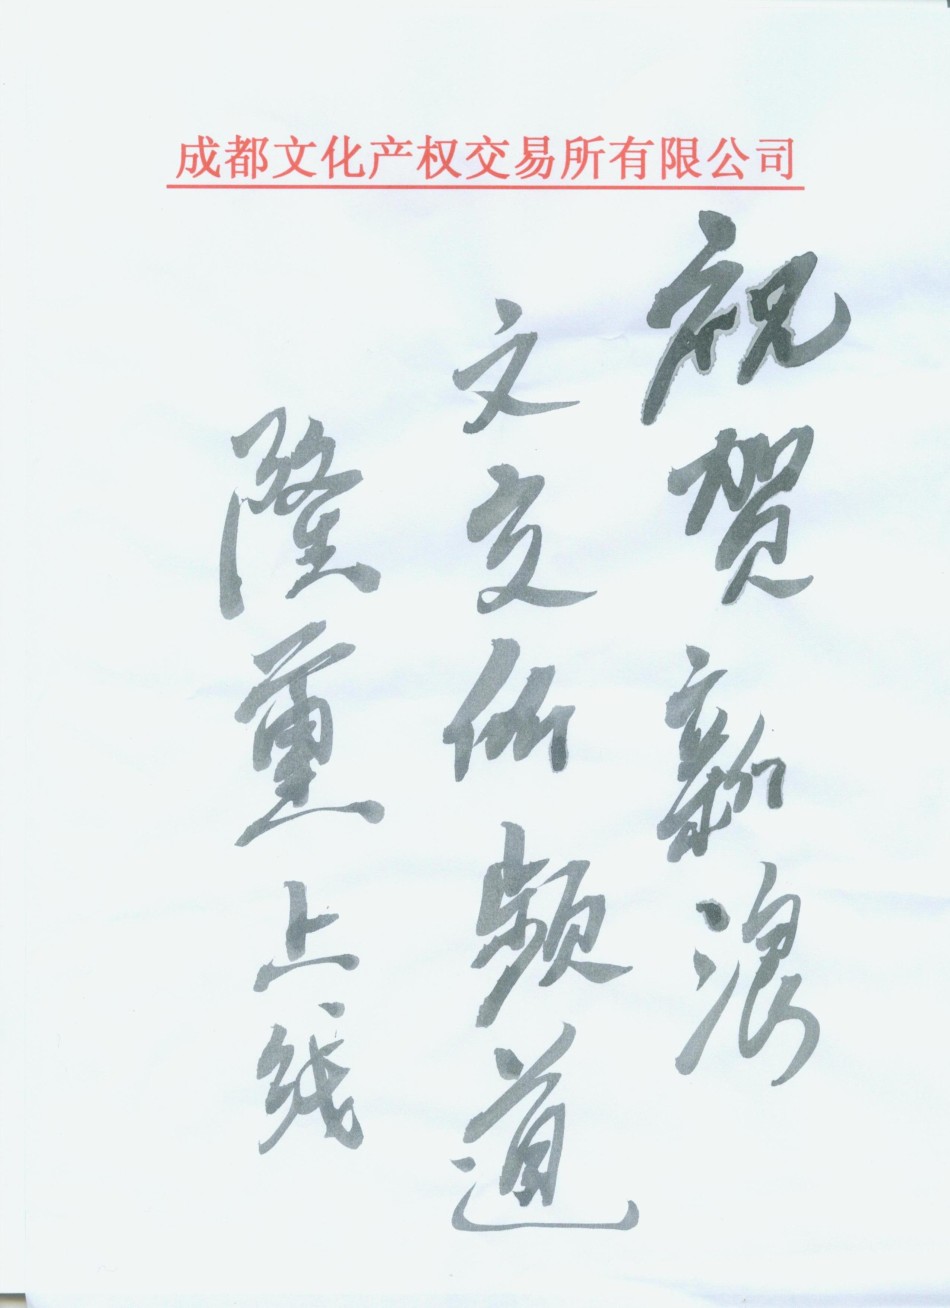 成都文化产权交易所有限公司
祝贺新浪
文交所频道
隆重上线